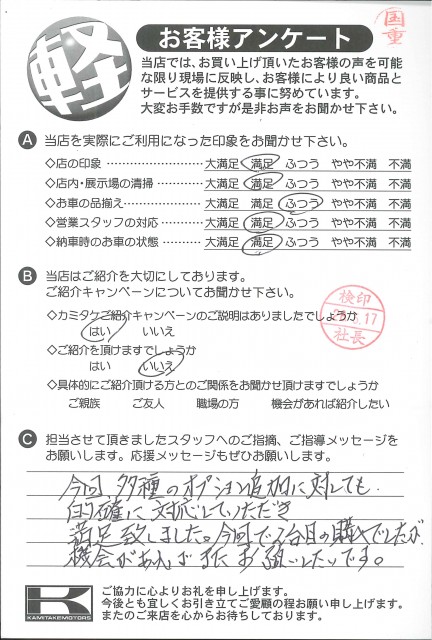 国重
軽
お客様アンケート
当店では、お買い上げ頂いたお客様の声を可能
な限り現場に反映し、お客様により良い商品と
サービスを提供する事に努めています。
大変お手数ですが是非お声をお聞かせ下さい。
A 当店を実際にご利用になった印象をお聞かせ下さい。
◇店の印象 大満足 満足 ふつう やや不満 不満
◇店内・展示場の清掃 大満足 満足 ふつう やや不満 不満
◇お車の品揃え 大満足 満足 ふつう やや不満 不満
◇営業スタッフの対応 大満足 満足 ふつう やや不満 不満
◇納車時のお車の状態 大満足 満足 ふつう やや不満 不満
B 当店はご紹介を大切にしております。
ご紹介キャンペーンについてお聞かせ下さい。
◇カミタケご紹介キャンペーンのご説明はありましたでしょうか
はい いいえ
検印
17
社長
◇ご紹介を頂けますでしょうか
はい いいえ
◇具体的にご紹介頂ける方とのご関係をお聞かせ頂けますでしょうか
ご親族 ご友人 職場の方 機会があれば紹介したい
C 担当させて頂きましたスタッフへのご指摘、ご指導メッセージを
お願いします。応援メッセージもぜひお願いします。
今回 多種のオプション追加に対しても
的確に対応していただき
満足致しました。今回で2台目の購入でしたが
機会があればまたお願いしたいです。
K
KAMITAKEMOTORS
ご協力に心よりお礼を申し上げます。
今後とも宜しくお引き立てご愛顧の程お願い申し上げます。
またのご来店を心からお待ちしております。